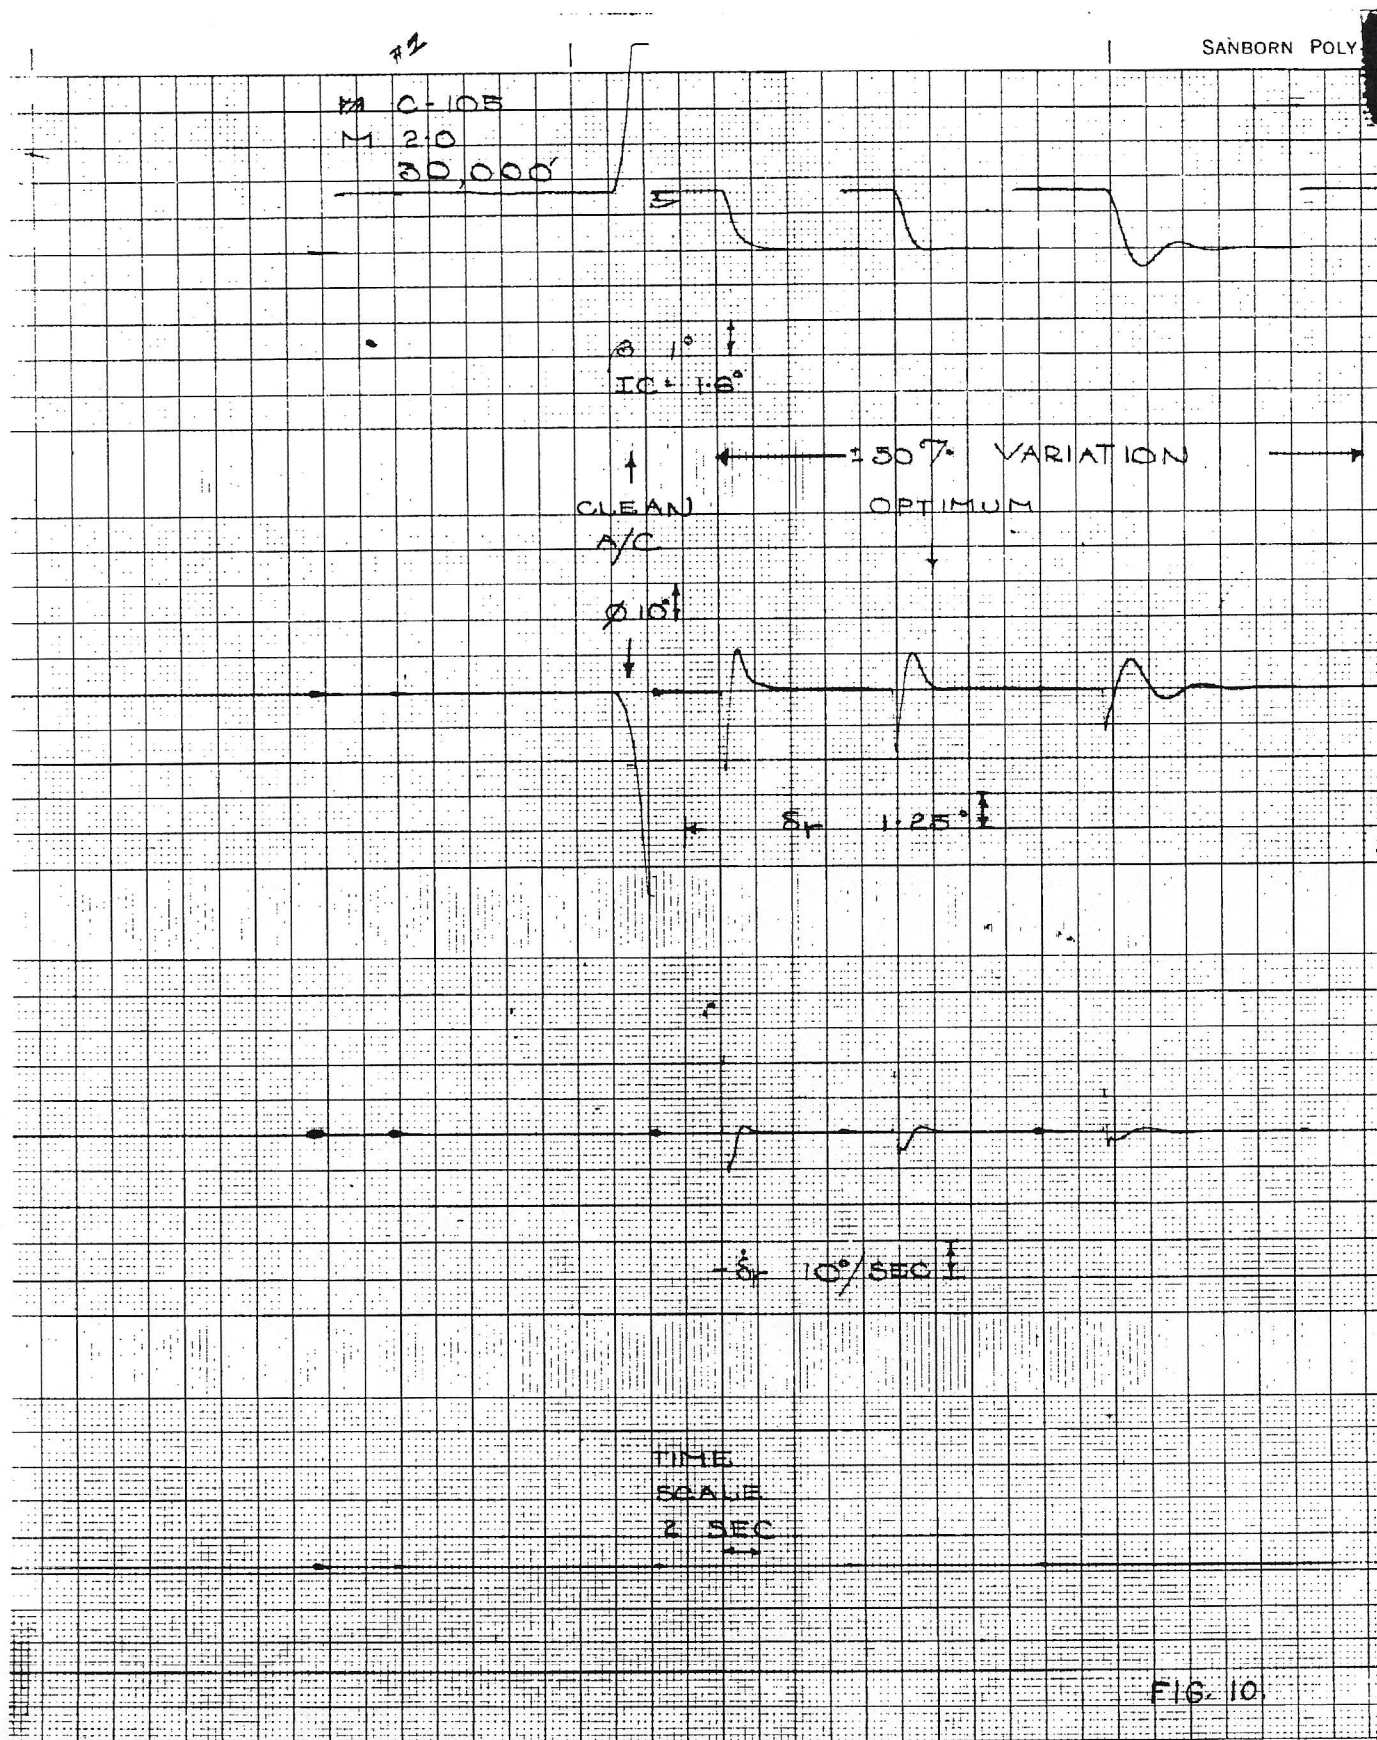 #2
SANBORN POLY
C-105
M 2.0
30,000'
β 1°
IC = 1.6°
±50% VARIATION
CLEAN
A/C
OPTIMUM
Ø 10°
δr 1.25°
-δ̇r 10°/SEC
TIME
SCALE
2 SEC
FIG. 10.